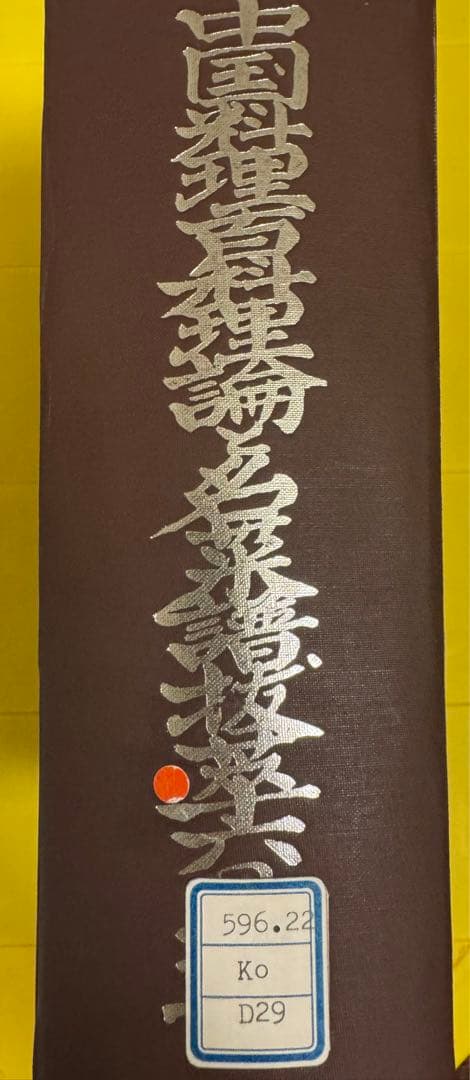 中国料理百科理論名菜譜抜萃六
596.22
Ko
D29